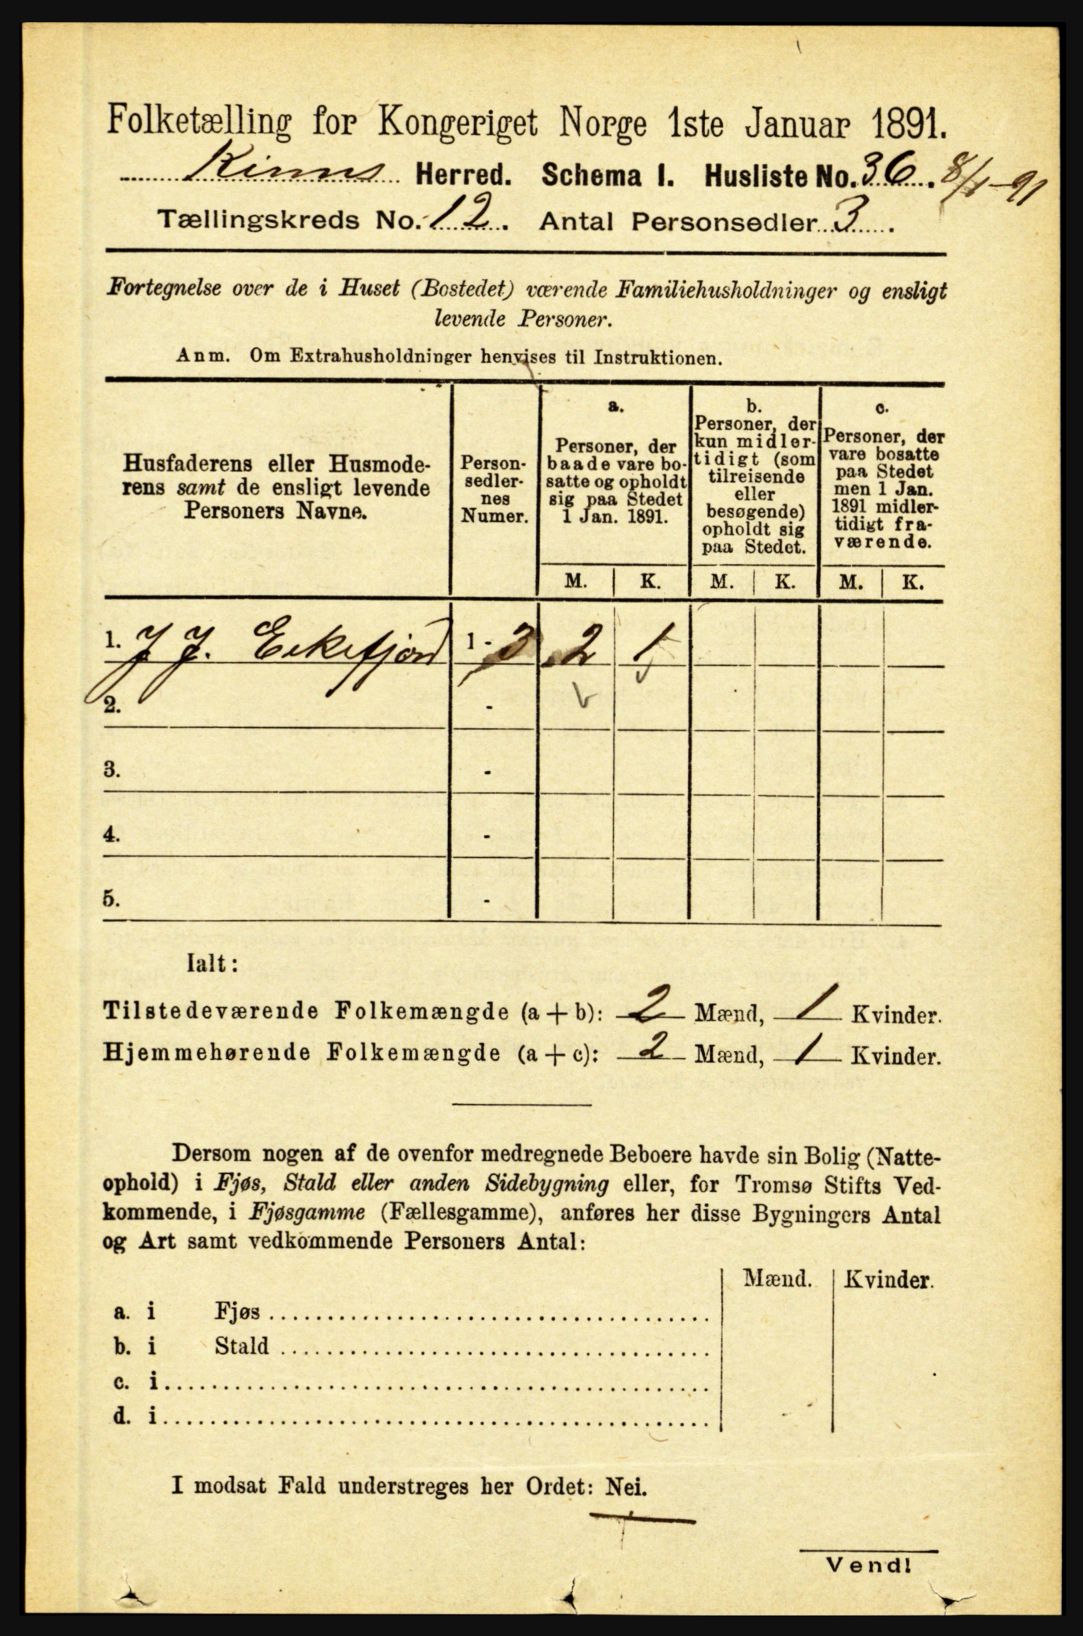 Folketælling for Kongeriget Norge 1ste Januar 1891.
Kinns Herred. Schema I. Husliste No. 36. 8/1-91
Tællingskreds No. 12. Antal Personsedler 3.
Fortegnelse over de i Huset (Bostedet) værende Familiehusholdninger og ensligt
levende Personer.
Anm. Om Extrahusholdninger henvises til Instruktionen.
Husfaderens eller Husmode-
rens samt de ensligt levende
Personers Navne.
Person-
sedler-
nes
Numer.
a.
Personer, der
baade vare bo-
satte og opholdt
sig paa Stedet
1 Jan. 1891.
b.
Personer, der
kun midler-
tidigt (som
tilreisende
eller
besøgende)
opholdt sig
paa Stedet.
c.
Personer, der
vare bosatte
paa Stedet
men 1 Jan.
1891 midler-
tidigt fra-
værende.
M. K. M. K. M. K.
1. J J. Eikefjord 1 - 3 2 1
2. -
3. -
4. -
5. -
Ialt:
Tilstedeværende Folkemængde (a + b): 2 Mænd, 1 Kvinder.
Hjemmehørende Folkemængde (a + c): 2 Mænd, 1 Kvinder.
Dersom nogen af de ovenfor medregnede Beboere havde sin Bolig (Natte-
ophold) i Fjøs, Stald eller anden Sidebygning eller, for Tromsø Stifts Ved-
kommende, i Fjøsgamme (Fællesgamme), anføres her disse Bygningers Antal
og Art samt vedkommende Personers Antal:
Mænd. Kvinder.
a. i Fjøs
b. i Stald
c. i
d. i
I modsat Fald understreges her Ordet: Nei.
Vend!